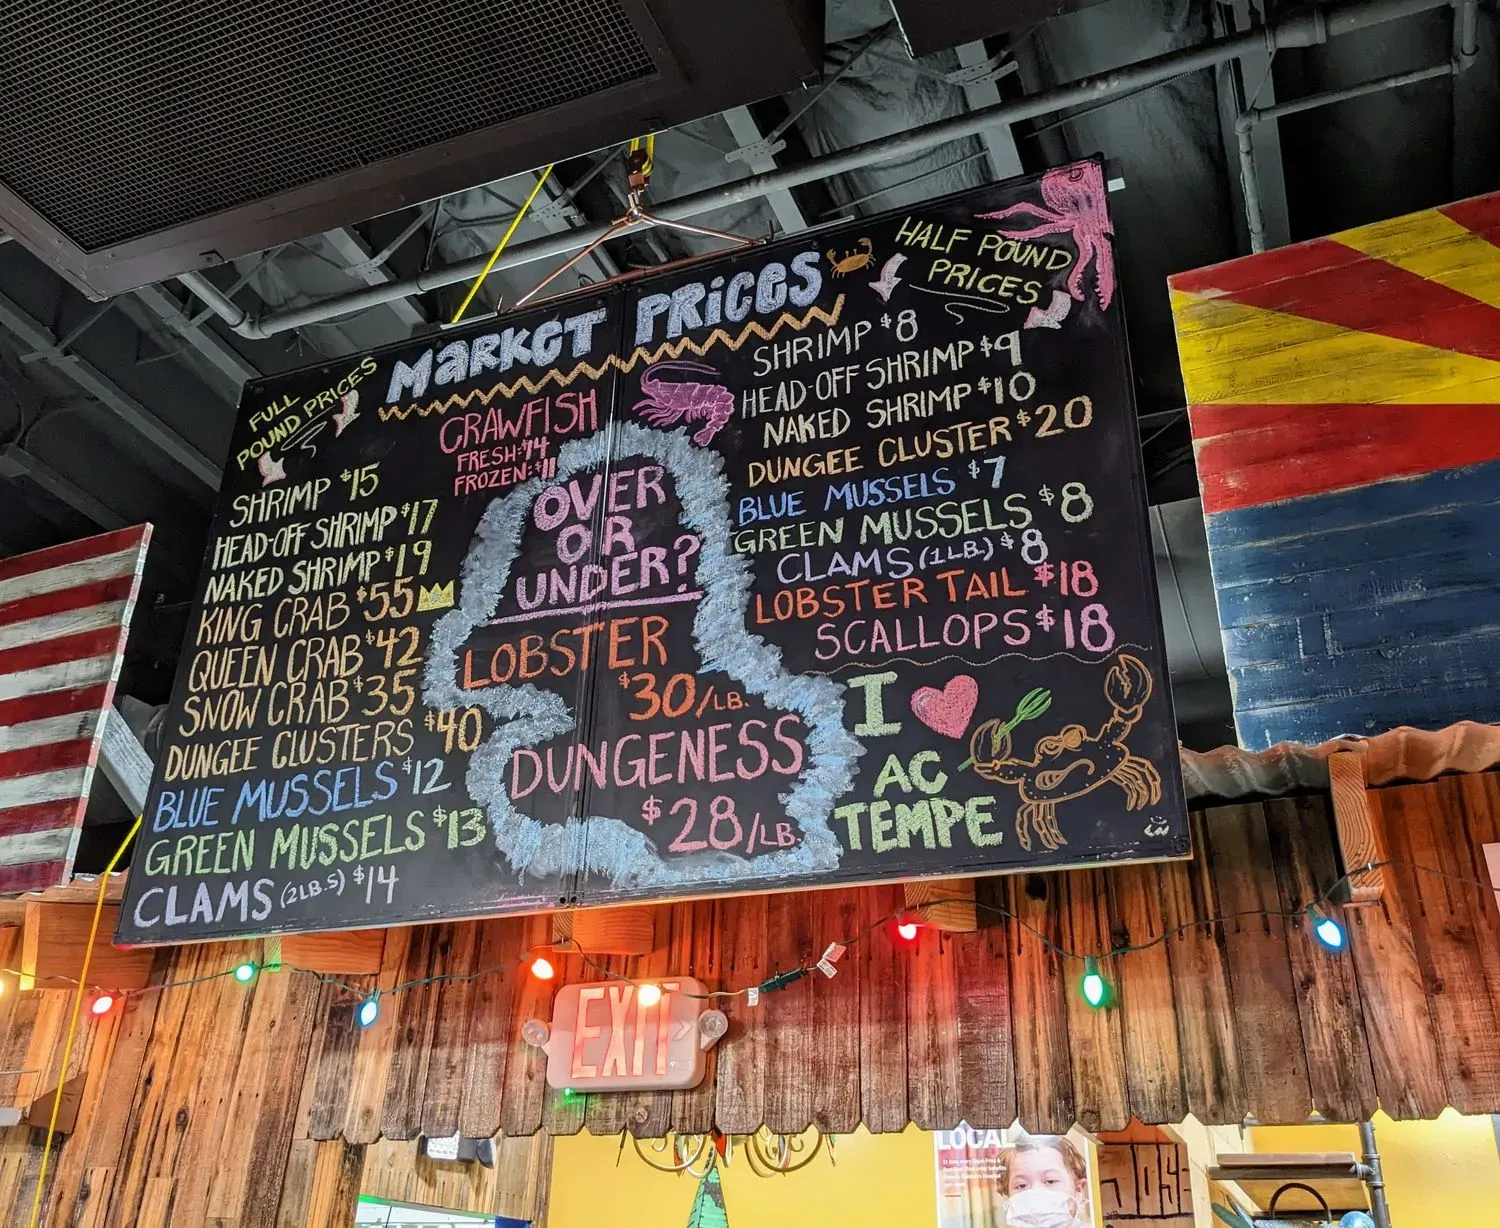 MARKET PRICES
FULL
POUND PRICES
SHRIMP $15
HEAD-OFF SHRIMP $17
NAKED SHRIMP $19
KING CRAB $55
QUEEN CRAB $42
SNOW CRAB $35
DUNGEE CLUSTERS $40
BLUE MUSSELS $12
GREEN MUSSELS $13
CLAMS (2LB.S) $14
CRAWFISH
FRESH: $14
FROZEN: $11
OVER
OR
UNDER?
LOBSTER
$30/LB.
DUNGENESS
$28/LB.
HALF POUND
PRICES
SHRIMP $8
HEAD-OFF SHRIMP $9
NAKED SHRIMP $10
DUNGEE CLUSTER $20
BLUE MUSSELS $7
GREEN MUSSELS $8
CLAMS (1LB.) $8
LOBSTER TAIL $18
SCALLOPS $18
I
AC
TEMPE
EXIT
LOCAL